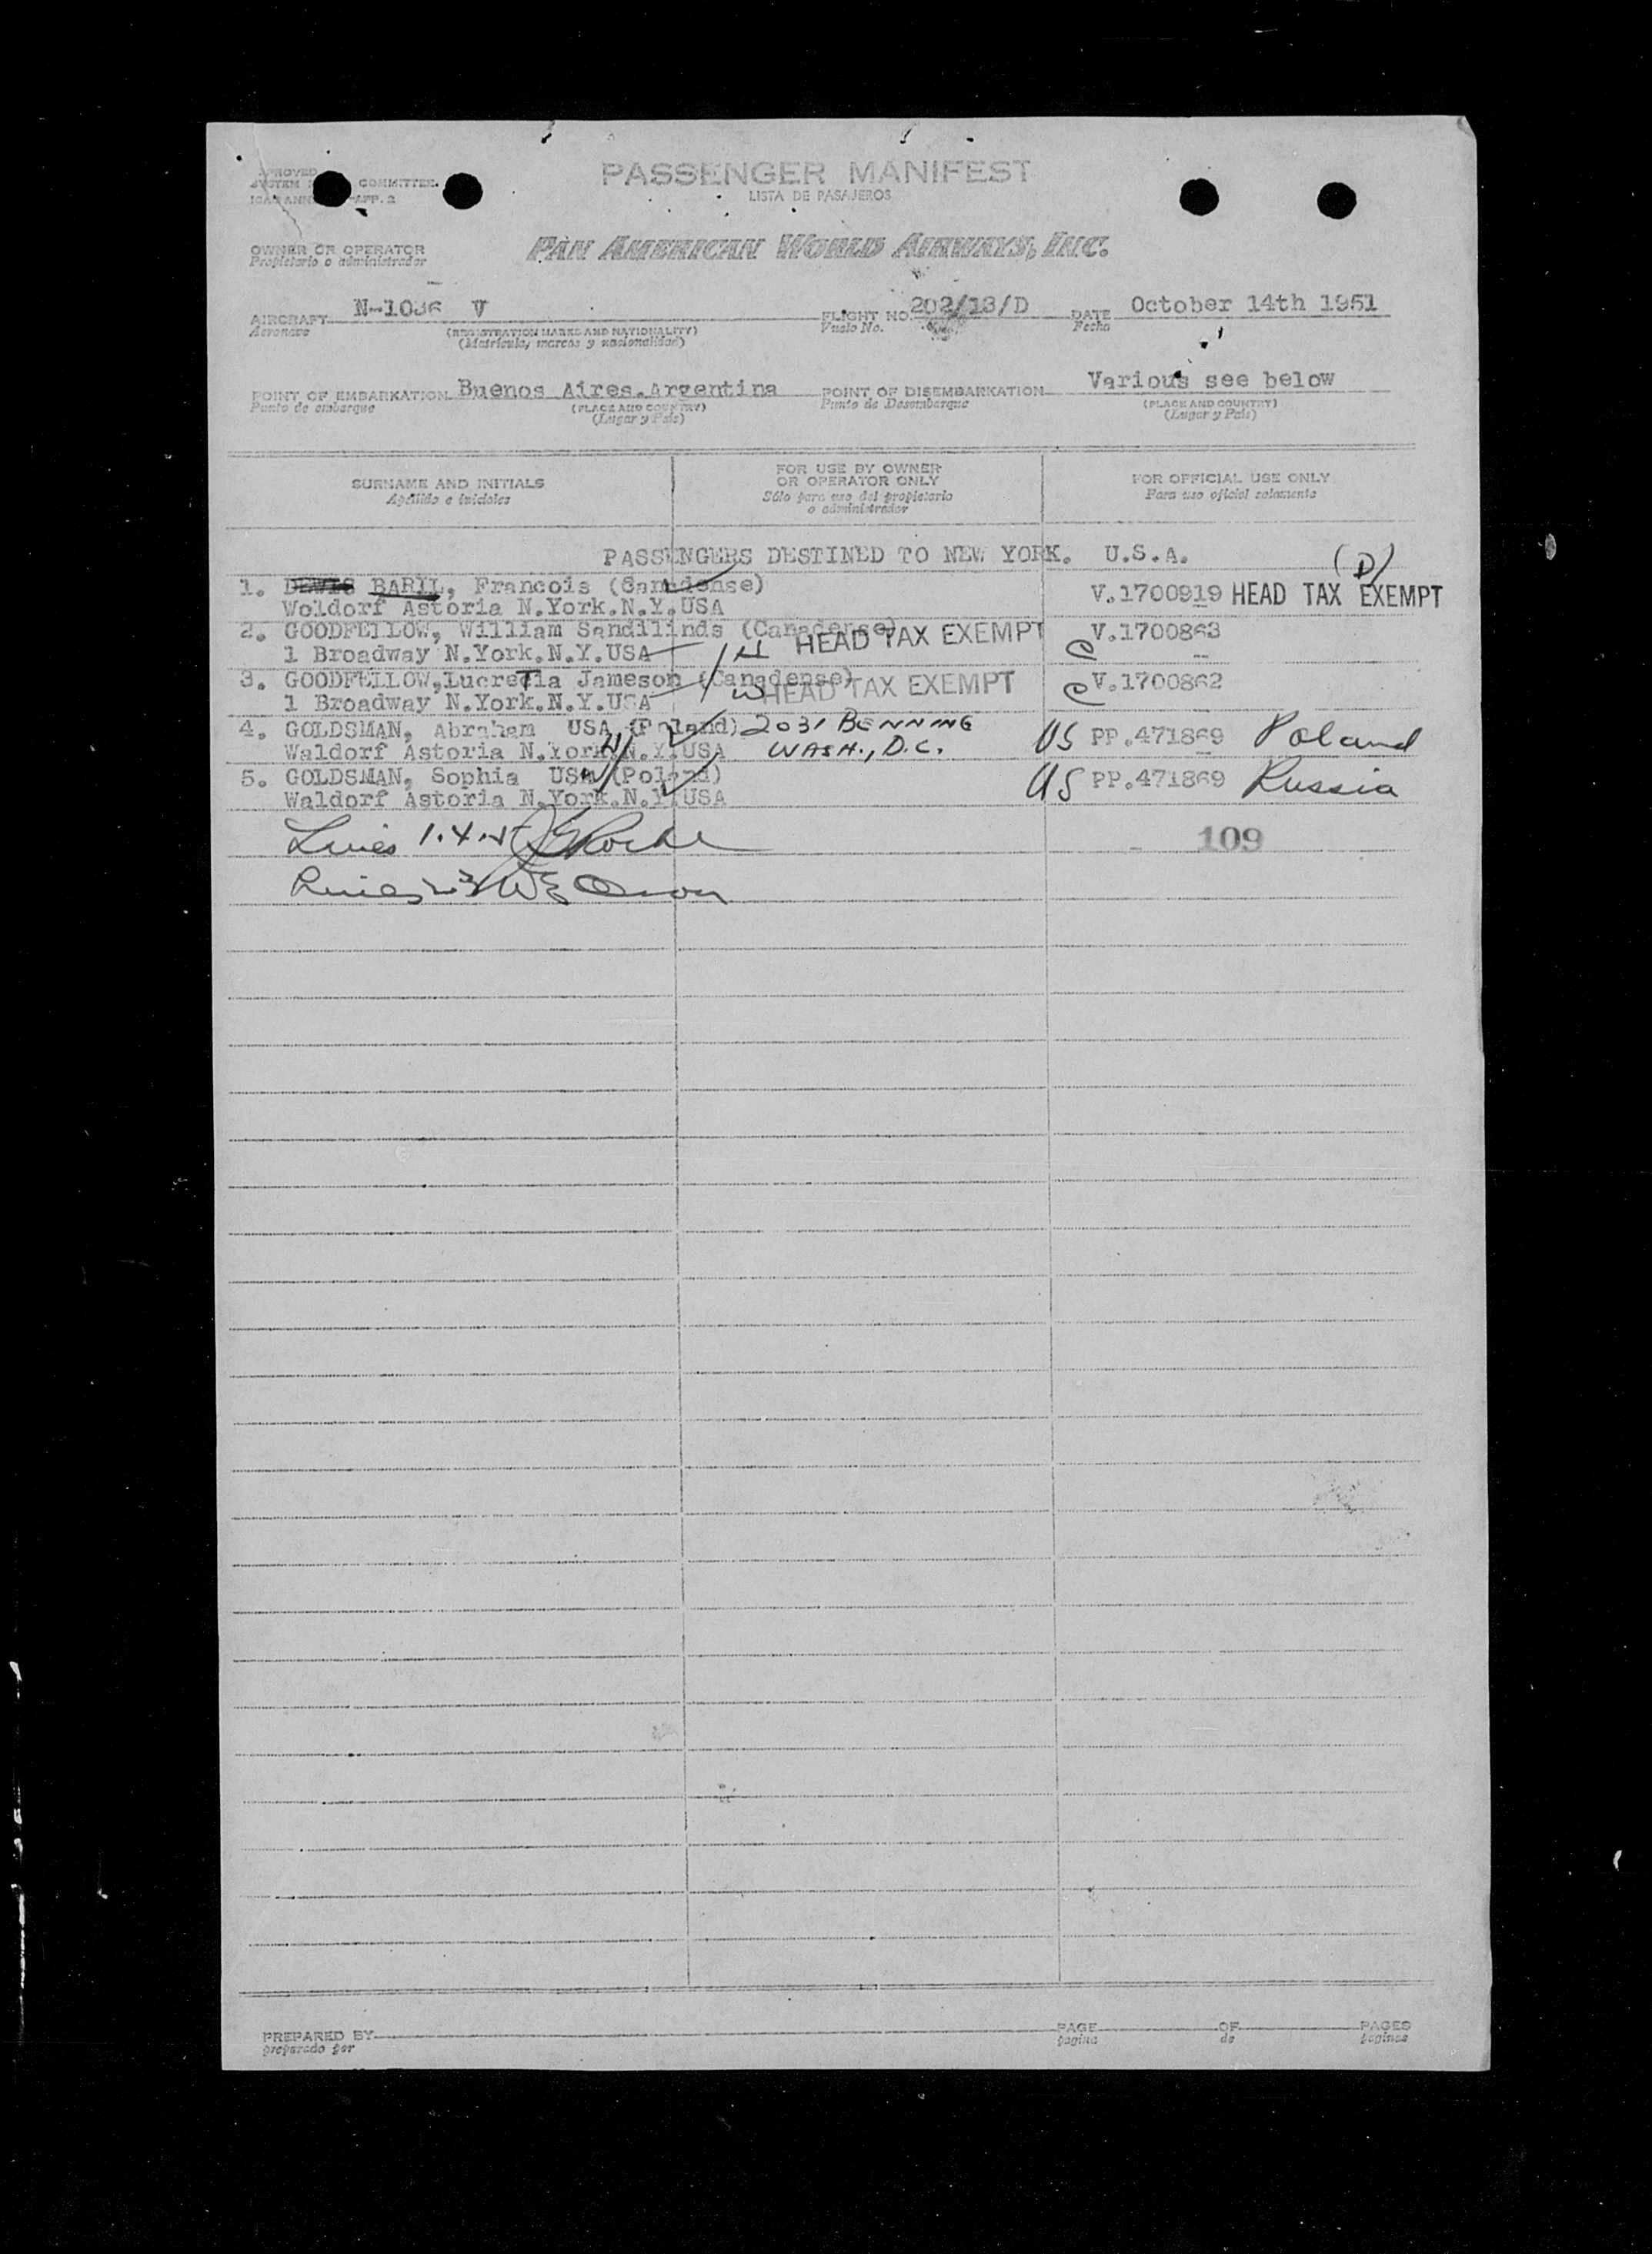 APPROVED
SYSTEM COMMITTEE.
APP. 2
PASSENGER MANIFEST
LISTA DE PASAJEROS
OWNER OR OPERATOR
Propietario o administrador
PAN AMERICAN WORLD AIRWAYS, INC.
AIRCRAFT N-1036 V FLIGHT NO. 202/13/D DATE October 14th 1951
Aeronave (REGISTRATION MARKS AND NATIONALITY) Vuelo No. Fecha
(Matricula, marcas y nacionalidad)
POINT OF EMBARKATION Buenos Aires.Argentina POINT OF DISEMBARKATION Various see below
Punto de embarque (PLACE AND COUNTRY) Punto de Desembarque (PLACE AND COUNTRY)
(Lugar y País) (Lugar y País)
SURNAME AND INITIALS FOR USE BY OWNER OR OPERATOR ONLY FOR OFFICIAL USE ONLY
Apellido e iniciales Sólo para uso del propietario o administrador Para uso oficial solamente
PASSENGERS DESTINED TO NEW YORK. U.S.A. (D)
1. BARIL, Francois (Canadense) V.1700919 HEAD TAX EXEMPT
Woldorf Astoria N.York.N.Y.USA
2. GOODFELLOW, William Sandilinds (Canadense) HEAD TAX EXEMPT V.1700863
1 Broadway N.York.N.Y.USA C
3. GOODFELLOW,LucreTia Jameson (Canadense) HEAD TAX EXEMPT C V.1700862
1 Broadway N.York.N.Y.USA
4. GOLDSMAN, Abraham USA (Poland) 2031 BENNING US PP.471869 Poland
Waldorf Astoria N.York.N.Y.USA WASH., D.C.
5. GOLDSMAN, Sophia USA (Poland) US PP.471869 Russia
Waldorf Astoria N.York.N.Y.USA
Lines 1.4.5 109
Lines 2-3
PREPARED BY PAGE OF PAGES
preparado por pagina de paginas